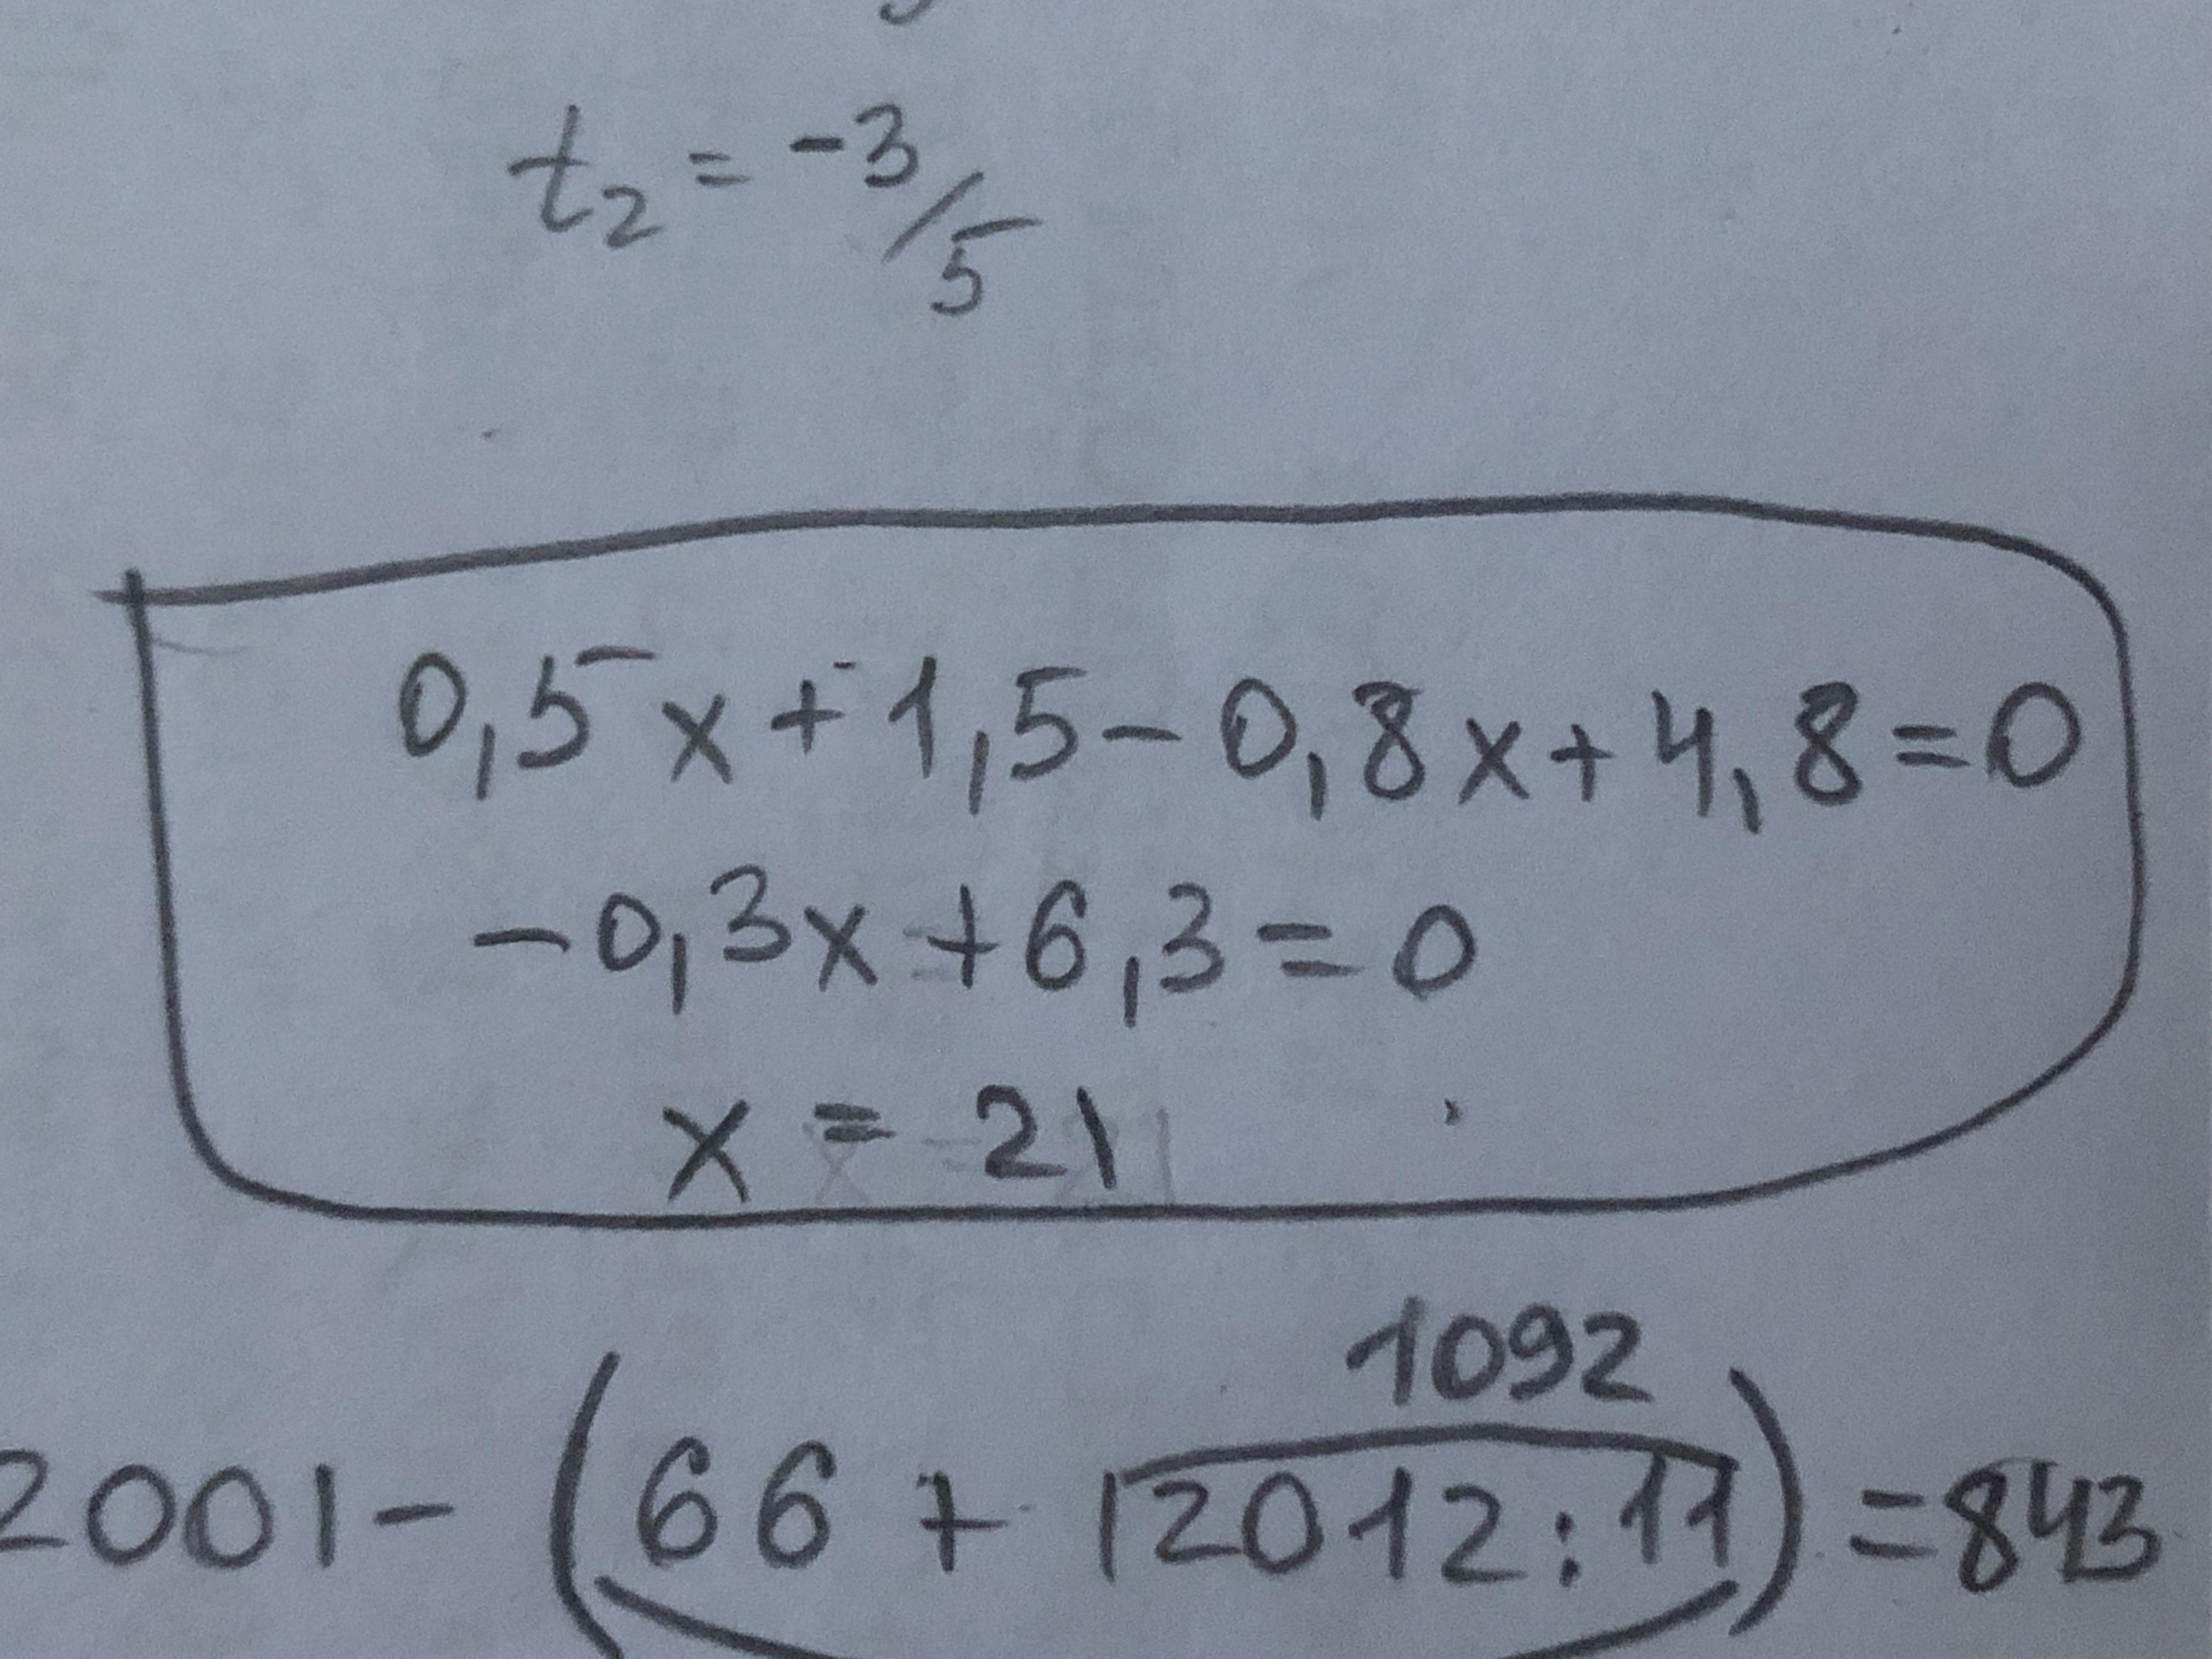 t₂ = -3/5
0,5x + 1,5 - 0,8x + 4,8 = 0
-0,3x + 6,3 = 0
x = 21
1092
2001 - (66 + 12012 : 11) = 843